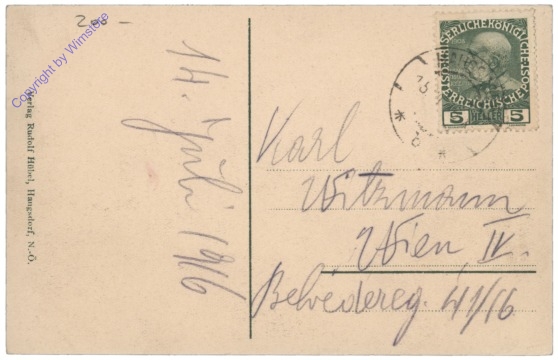 200 -
Copyright by Wimstore
Verlag Rudolf Hübel, Haugsdorf, N.-Ö.
14. Juli 1916
KAISERLICHE KÖNIGLICHE
ÖSTERREICHISCHE POST
5 HELLER 5
Karl
Witzmann
Wien IV.
Belvedereg. 41/16